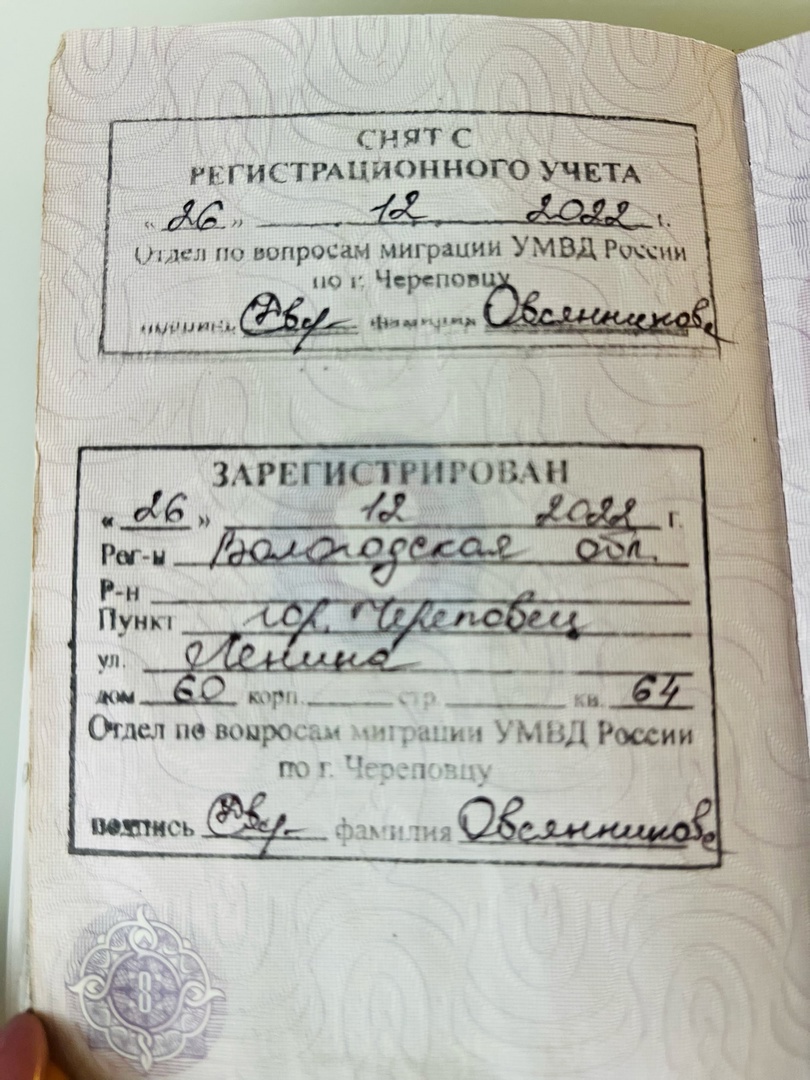 СНЯТ С
РЕГИСТРАЦИОННОГО УЧЕТА
«26» 12 2022 г.
Отдел по вопросам миграции УМВД России
по г. Череповцу
подпись фамилия Овсянникова
ЗАРЕГИСТРИРОВАН
«26» 12 2022 г.
Рег-н Вологодская обл.
Р-н
Пункт гор. Череповец
ул. Ленина
дом 60 корп. стр. кв. 64
Отдел по вопросам миграции УМВД России
по г. Череповцу
подпись фамилия Овсянникова
8